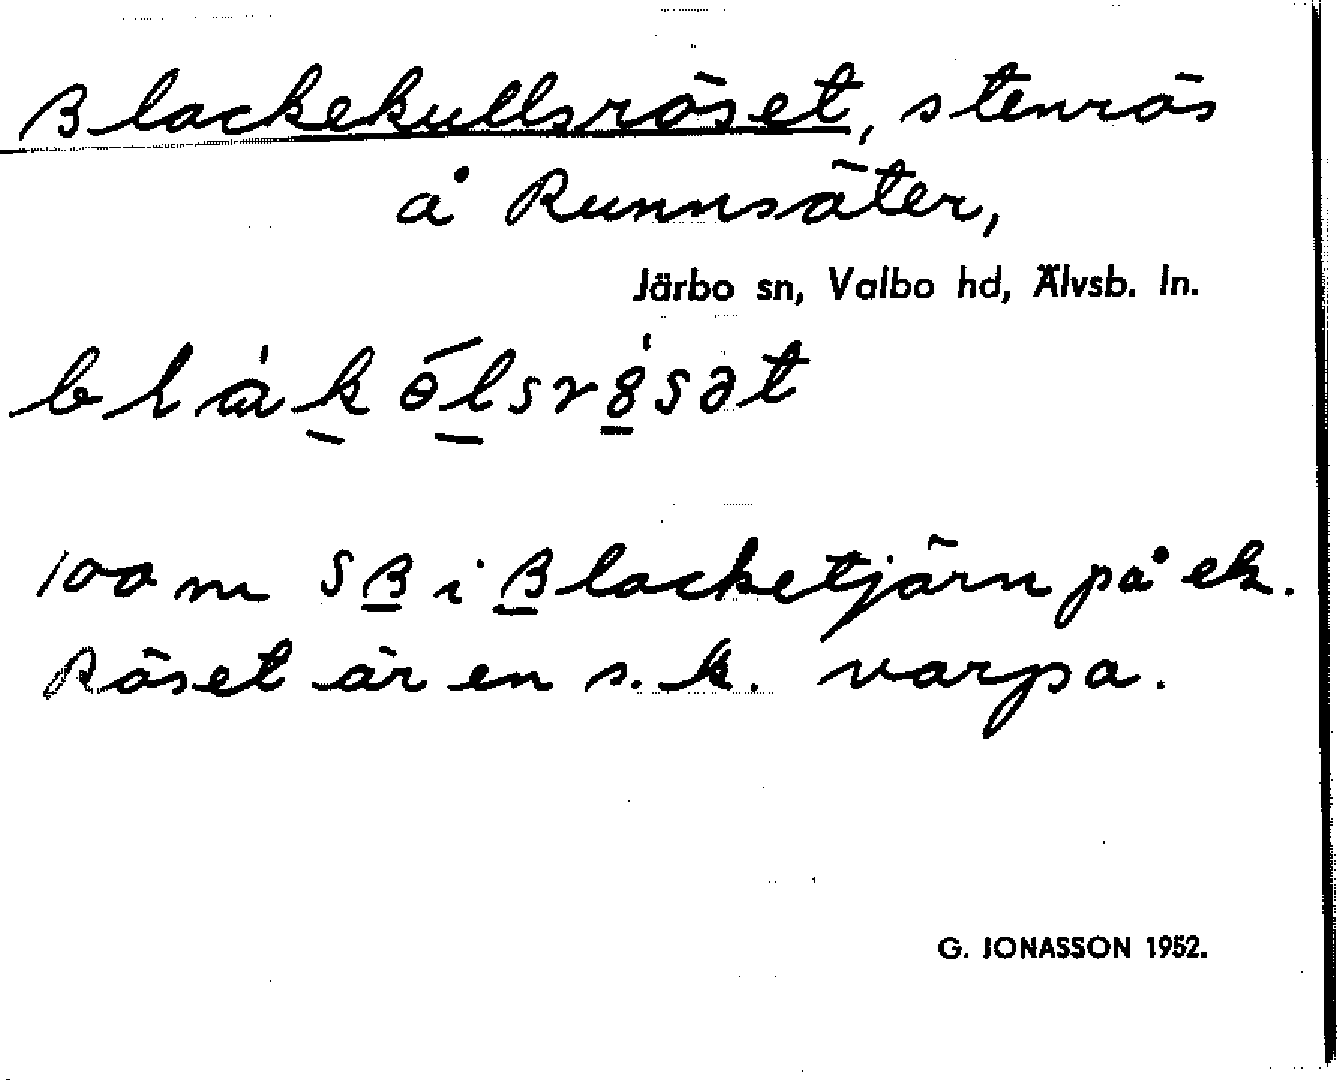 Blackekullsröset, stenrös
å Runnsäter,
Järbo sn, Valbo hd, Älvsb. ln.
100 m S B i Blacketjärn på ek.
Röset är en s. k. varpa.
G. JONASSON 1952.